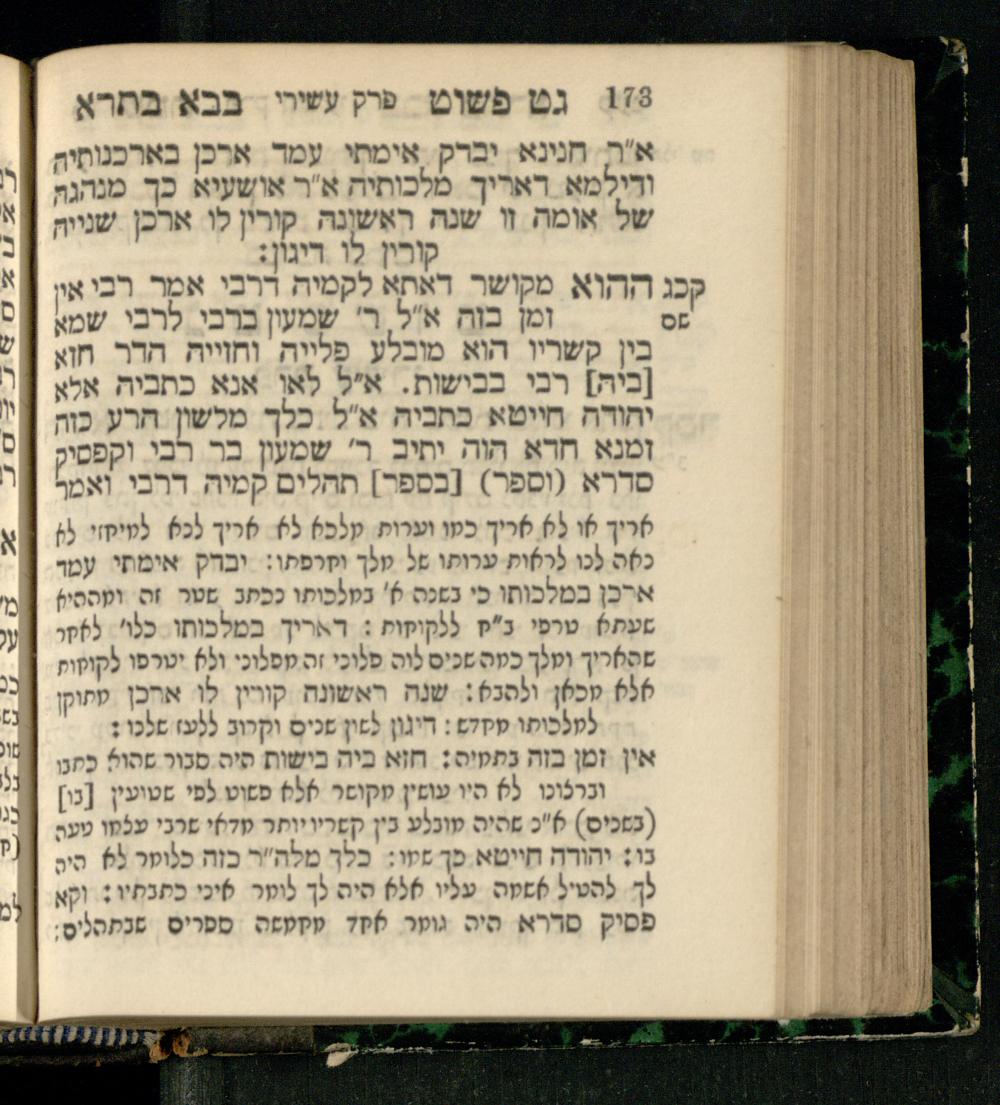 173 גט פשוט פרק עשירי בבא בתרא
א״ר חנינא יבדק אימתי עמד ארכן בארכנותיה
ודילמא דאריך מלכותיה א״ר אושעיא כך מנהגה
של אומה זו שנה ראשונה קורין לו ארכן שנייה
קורין לו דיגון:
קכג ההוא מקושר דאתא לקמיה דרבי אמר רבי אין
שם זמן בזה א״ל ר׳ שמעון ברבי לרבי שמא
בין קשריו הוא מובלע פלייה וחזייה הדר חזא
[ביה] רבי בבישות. א״ל לאו אנא כתביה אלא
יהודה חייטא כתביה א״ל כלך מלשון הרע כזה
זמנא חדא הוה יתיב ר׳ שמעון בר רבי וקפסיק
סדרא (וספר) [בספר] תהלים קמיה דרבי ואמר
אריך או לא אריך כמו וערות מלכא לא אריך לנא למיחזי לא
נאה לנו לראות ערותו של מלך וחרפתו: יבדק אימתי עמד
ארכן במלכותו כי בשנה א׳ במלכותו נכתב שטר זה ומההיא
שעתא טרפי ב״ח ללקוחות: דאריך במלכותו כלו׳ לאחר
שהאריך ומלך כמה שנים לוה פלוני זה מפלוני ולא יטרפו לקוחות
אלא מכאן ולהבא: שנה ראשונה קורין לו ארכן מתוקן
למלכותו מחדש: דיגון לשון שנים וקרוב ללעז שלנו:
אין זמן בזה בתמיה: חזא ביה בישות היה סבור שהוא כתבו
וברצונו לא היו עושין מקושר אלא פשוט לפי שטועין [בו]
(בשנים) א״כ שהיה מובלע בין קשריו יותר מדאי שרבי עצמו טעה
בו: יהודה חייטא כך שמו: כלך מלה״ר כזה כלומר לא היה
לך להטיל אשמה עליו אלא היה לך לומר איני כתבתיו: וקא
פסיק סדרא היה גומר אחד מחמשה ספרים שבתהלים: